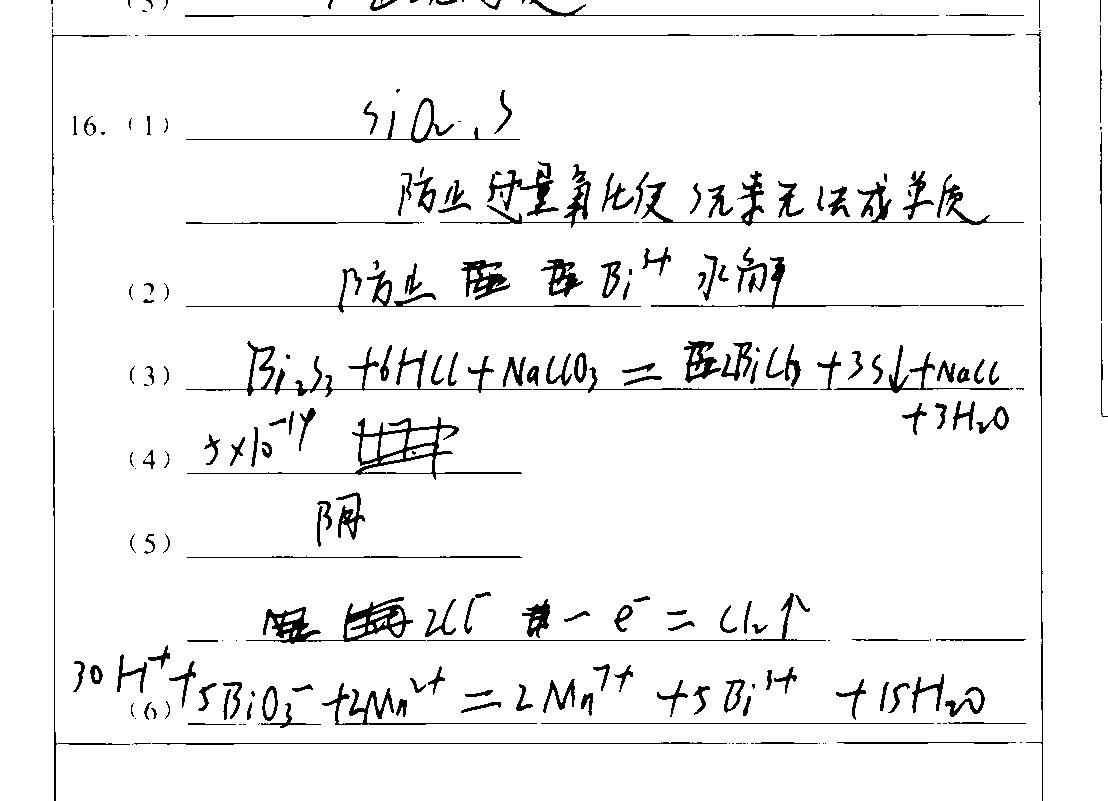 (3)
16. (1) SiO₂、S
防止过量氧化使S元素无法成单质
(2) 防止 Bi³⁺ 水解
(3) Bi₂S₃ +6HCl+NaClO₃ = 2BiCl₃ +3S↓+NaCl
+3H₂O
(4) 5×10⁻¹⁴
(5) 阴
2Cl⁻ - e⁻ = Cl₂↑
30H⁺+
(6) 5BiO₃⁻ +2Mn²⁺ = 2Mn⁷⁺ +5Bi³⁺ +15H₂O